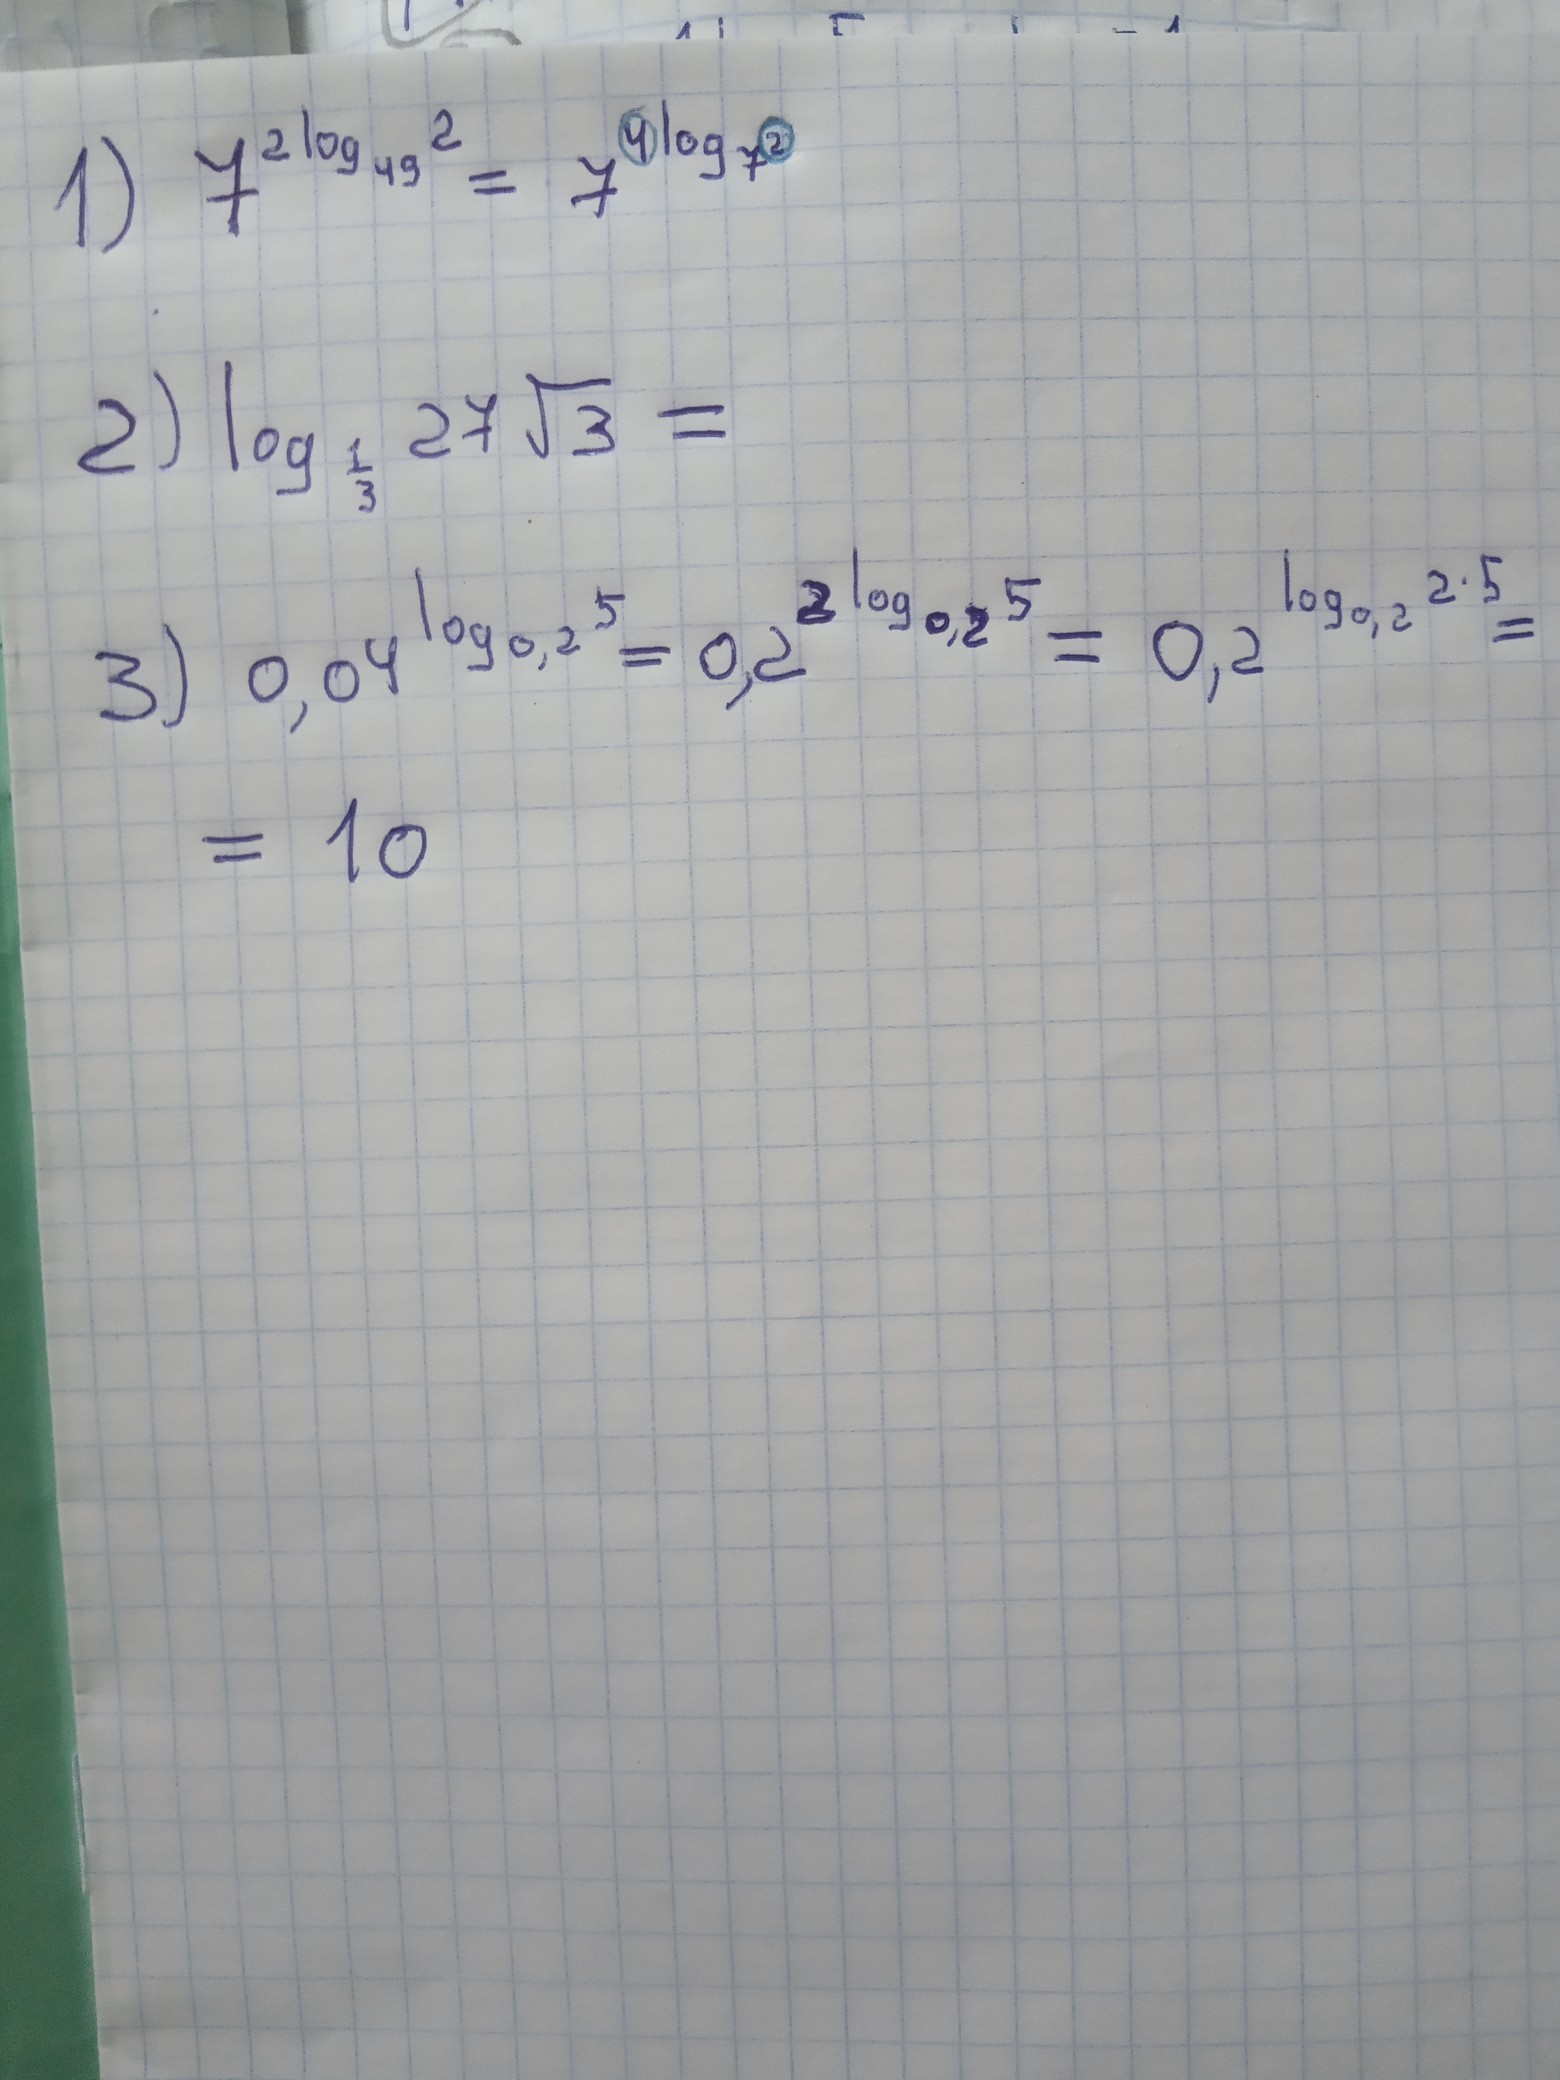 1) 7^{2 log_{49} 2} = 7^{4 log_7 2}
2) log_{1/3} 27√3 =
3) 0,04^{log_{0,2} 5} = 0,2^{2 log_{0,2} 5} = 0,2^{log_{0,2} 2·5} =
= 10